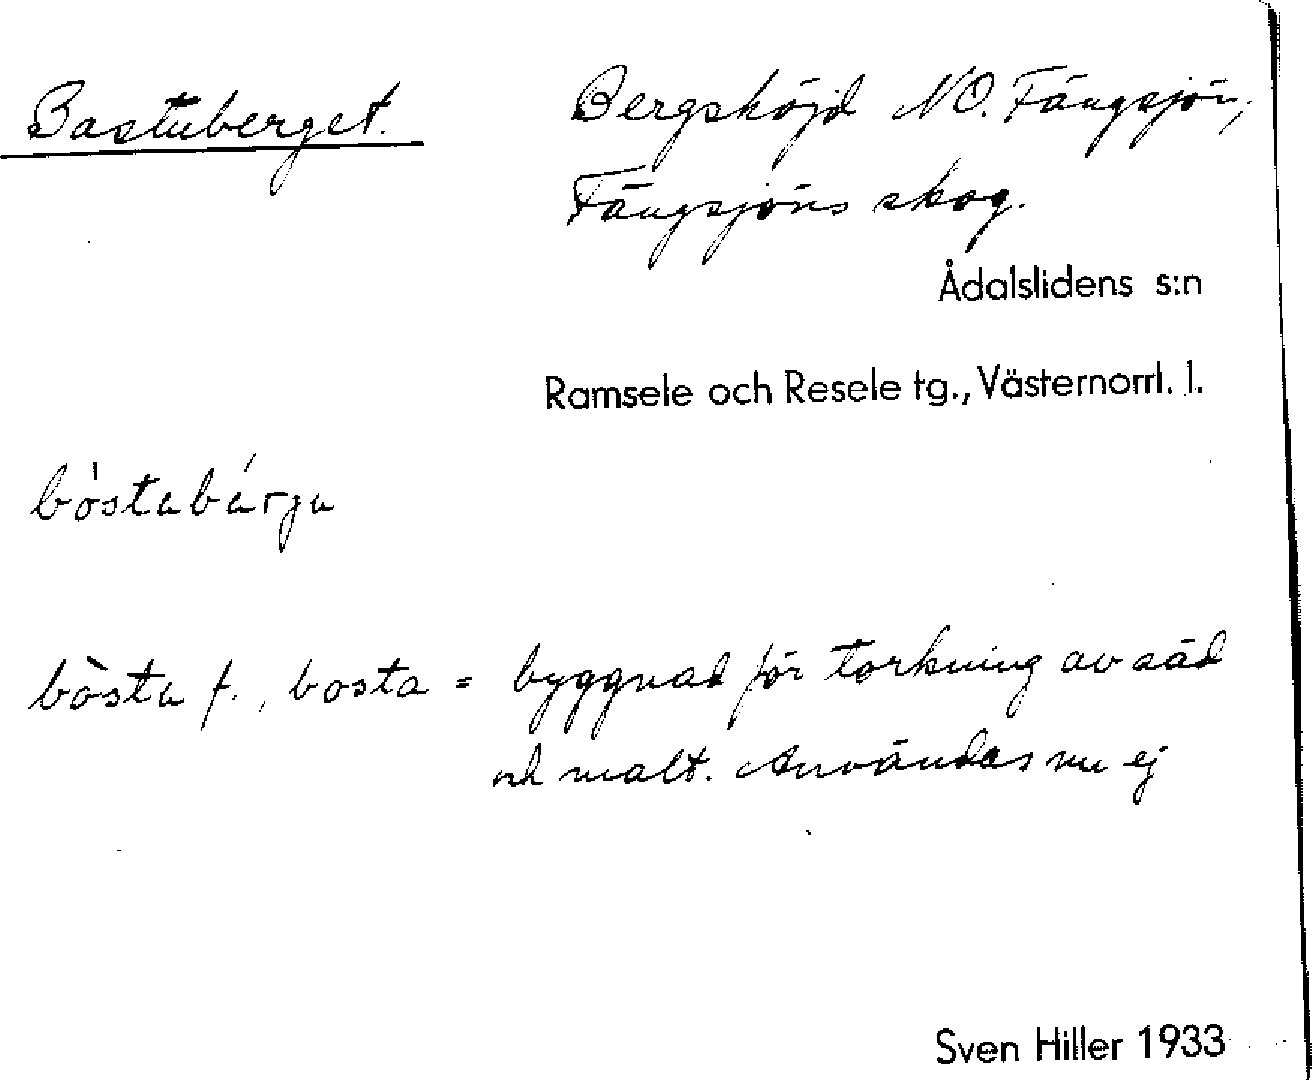 Bastuberget.
Bergshöjd NO. Fängsjön,
Fängsjöns skog.
Ådalslidens s:n
Ramsele och Resele tg., Västernorrl. l.
bóstabárga
bòsta f., bosta = byggnad för torkning av säd
och malt. Användes nu ej
Sven Hiller 1933